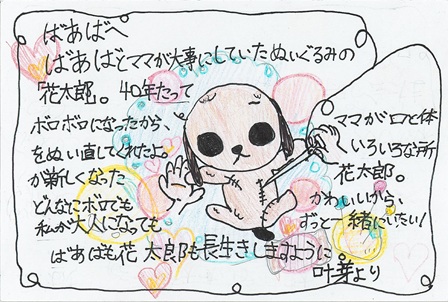 ばあばへ
ばあばとママが大事にしていたぬいぐるみの
「花太郎」。40年たって
ボロボロになったから、 ママが口と体
いろいろな所
をぬい直してくれたよ。 花太郎。
が新しくなった かわいいから、
どんなにボロでも ずっと一緒にいたい!
私が大人になっても
ばあばも花太郎も長生きしますように。
叶芽より